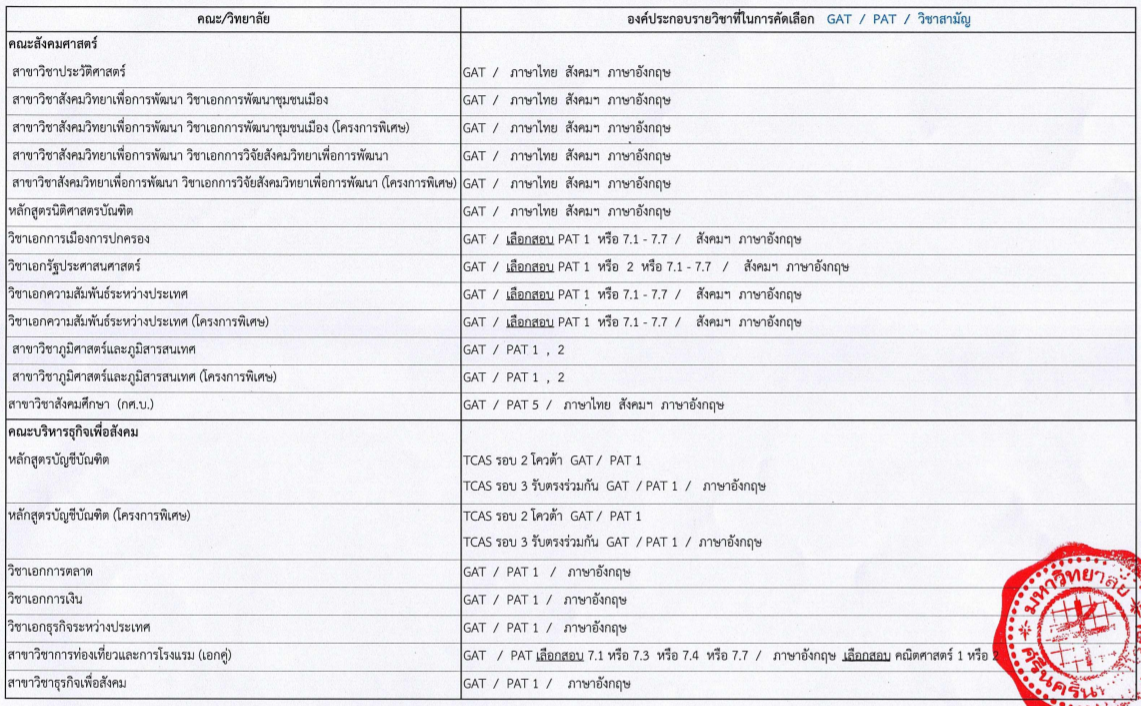 คณะ/วิทยาลัย องค์ประกอบรายวิชาที่ในการคัดเลือก GAT / PAT / วิชาสามัญ
คณะสังคมศาสตร์
สาขาวิชาประวัติศาสตร์ GAT / ภาษาไทย สังคมฯ ภาษาอังกฤษ
สาขาวิชาสังคมวิทยาเพื่อการพัฒนา วิชาเอกการพัฒนาชุมชนเมือง GAT / ภาษาไทย สังคมฯ ภาษาอังกฤษ
สาขาวิชาสังคมวิทยาเพื่อการพัฒนา วิชาเอกการพัฒนาชุมชนเมือง (โครงการพิเศษ) GAT / ภาษาไทย สังคมฯ ภาษาอังกฤษ
สาขาวิชาสังคมวิทยาเพื่อการพัฒนา วิชาเอกการวิจัยสังคมวิทยาเพื่อการพัฒนา GAT / ภาษาไทย สังคมฯ ภาษาอังกฤษ
สาขาวิชาสังคมวิทยาเพื่อการพัฒนา วิชาเอกการวิจัยสังคมวิทยาเพื่อการพัฒนา (โครงการพิเศษ) GAT / ภาษาไทย สังคมฯ ภาษาอังกฤษ
หลักสูตรนิติศาสตรบัณฑิต GAT / ภาษาไทย สังคมฯ ภาษาอังกฤษ
วิชาเอกการเมืองการปกครอง GAT / เลือกสอบ PAT 1 หรือ 7.1 - 7.7 / สังคมฯ ภาษาอังกฤษ
วิชาเอกรัฐประศาสนศาสตร์ GAT / เลือกสอบ PAT 1 หรือ 2 หรือ 7.1 - 7.7 / สังคมฯ ภาษาอังกฤษ
วิชาเอกความสัมพันธ์ระหว่างประเทศ GAT / เลือกสอบ PAT 1 หรือ 7.1 - 7.7 / สังคมฯ ภาษาอังกฤษ
วิชาเอกความสัมพันธ์ระหว่างประเทศ (โครงการพิเศษ) GAT / เลือกสอบ PAT 1 หรือ 7.1 - 7.7 / สังคมฯ ภาษาอังกฤษ
สาขาวิชาภูมิศาสตร์และภูมิสารสนเทศ GAT / PAT 1 , 2
สาขาวิชาภูมิศาสตร์และภูมิสารสนเทศ (โครงการพิเศษ) GAT / PAT 1 , 2
สาขาวิชาสังคมศึกษา (กศ.บ.) GAT / PAT 5 / ภาษาไทย สังคมฯ ภาษาอังกฤษ
คณะบริหารธุรกิจเพื่อสังคม
หลักสูตรบัญชีบัณฑิต TCAS รอบ 2 โควต้า GAT / PAT 1
TCAS รอบ 3 รับตรงร่วมกัน GAT / PAT 1 / ภาษาอังกฤษ
หลักสูตรบัญชีบัณฑิต (โครงการพิเศษ) TCAS รอบ 2 โควต้า GAT / PAT 1
TCAS รอบ 3 รับตรงร่วมกัน GAT / PAT 1 / ภาษาอังกฤษ
วิชาเอกการตลาด GAT / PAT 1 / ภาษาอังกฤษ
วิชาเอกการเงิน GAT / PAT 1 / ภาษาอังกฤษ
วิชาเอกธุรกิจระหว่างประเทศ GAT / PAT 1 / ภาษาอังกฤษ
สาขาวิชาการท่องเที่ยวและการโรงแรม (เอกคู่) GAT / PAT เลือกสอบ 7.1 หรือ 7.3 หรือ 7.4 หรือ 7.7 / ภาษาอังกฤษ เลือกสอบ คณิตศาสตร์ 1 หรือ 2
สาขาวิชาธุรกิจเพื่อสังคม GAT / PAT 1 / ภาษาอังกฤษ
มหาวิทยาลัย